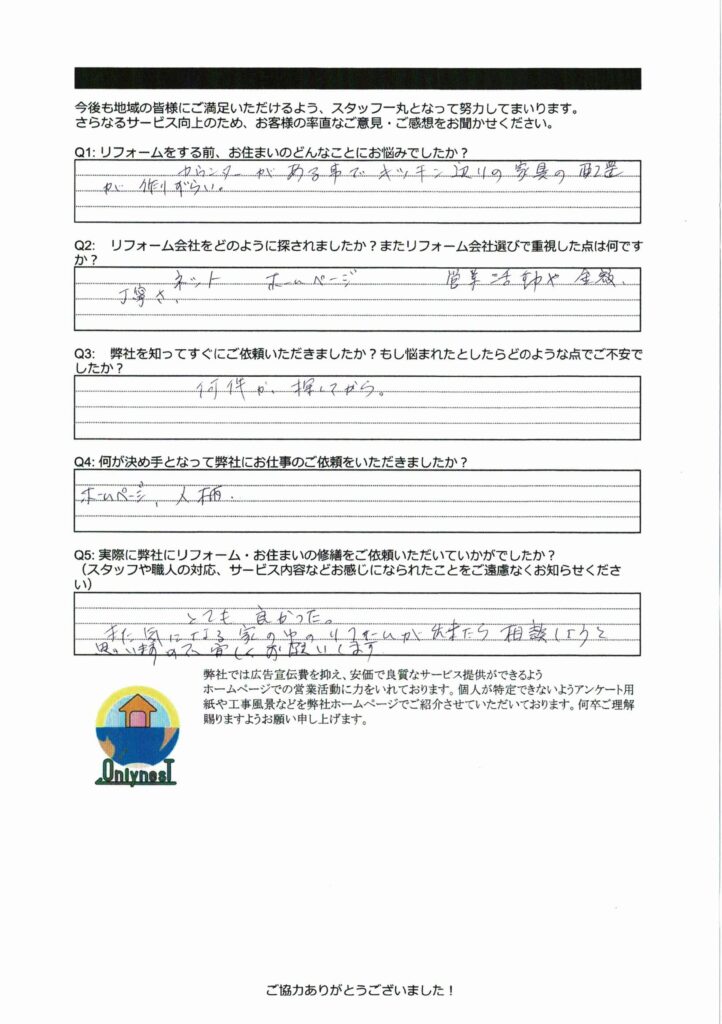 今後も地域の皆様にご満足いただけるよう、スタッフ一丸となって努力してまいります。
さらなるサービス向上のため、お客様の率直なご意見・ご感想をお聞かせください。
Q1: リフォームをする前、お住まいのどんなことにお悩みでしたか？
カウンターがある事でキッチン辺りの家具の配置
が作りずらい。
Q2: リフォーム会社をどのように探されましたか？またリフォーム会社選びで重視した点は何です
か？
ネット ホームページ 営業活動や金額、
丁寧さ、
Q3: 弊社を知ってすぐにご依頼いただきましたか？もし悩まれたとしたらどのような点でご不安で
したか？
何件か、探してから。
Q4: 何が決め手となって弊社にお仕事のご依頼をいただきましたか？
ホームページ、人柄.
Q5: 実際に弊社にリフォーム・お住まいの修繕をご依頼いただいていかがでしたか？
（スタッフや職人の対応、サービス内容などお感じになられたことをご遠慮なくお知らせくださ
い）
とても良かった。
また気になる家の中のリフォームが出来たら相談しようと
思いますので宜しくお願いします
弊社では広告宣伝費を抑え、安価で良質なサービス提供ができるよう
ホームページでの営業活動に力をいれております。個人が特定できないようアンケート用
紙や工事風景などを弊社ホームページでご紹介させていただいております。何卒ご理解
賜りますようお願い申し上げます。
OnlynesT
ご協力ありがとうございました！